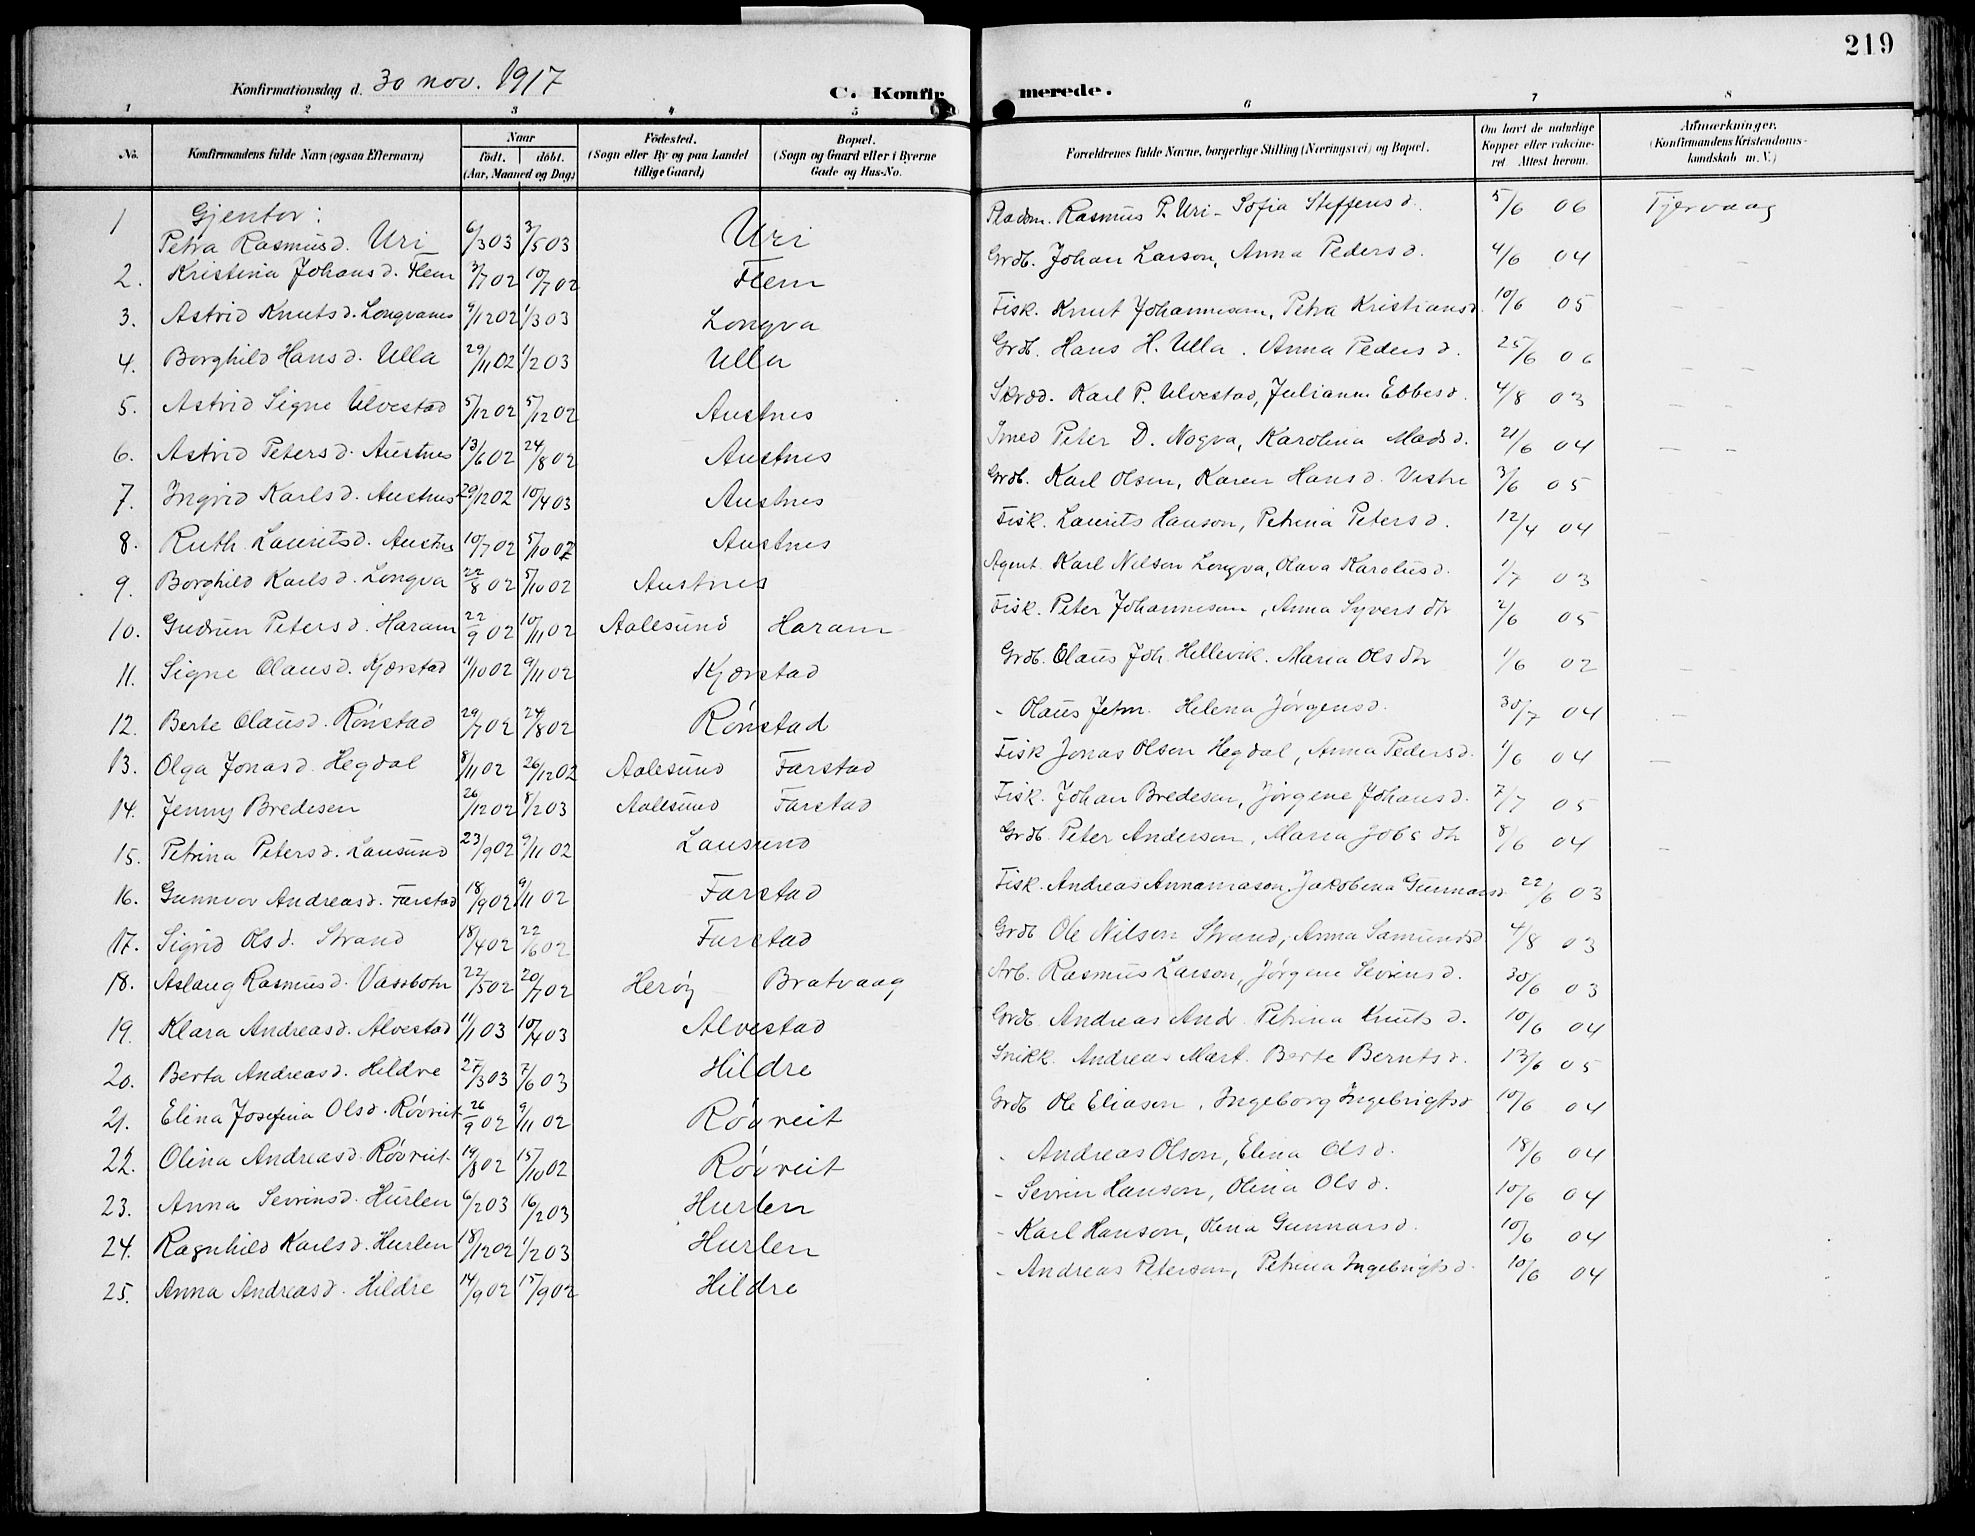 219
Konfirmationsdag d. 30 nov. 1917
C. Konfirmerede.
1 2 3 4 5 6 7 8
No. Konfirmandens fulde Navn (ogsaa Efternavn) Naar født. døbt. (Aar, Maaned og Dag) Fødested. (Sogn eller By og paa Landet tillige Gaard) Bopæl. (Sogn og Gaard eller i Byerne Gade og Hus-No. Forældrenes fulde Navne, borgerlige Stilling (Næringsvei) og Bopæl. Om havt de naturlige Kopper eller vaccineret. Attest herom. Anmærkninger. (Konfirmandens Kristendomskundskab m. V.)
Gjentor:
1 Petra Rasmusd. Uri 6/3 03 3/5 03 Uri Pladsm. Rasmus P. Uri - Sofia Steffensd. 5/6 06 Fjervaag
2. Kristina Johansd. Flem 3/7 02 10/7 02 Flem Grdb. Johan Larson, Anna Pedersd. 4/6 04
3. Astrid Knutsd. Longvanes 9/12 02 1/3 03 Longva Fisk. Knut Johannesen, Petra Kristiansd. 10/6 05
4. Borghild Hansd. Ulla 29/11 02 1/2 03 Ulla Grdb. Hans H. Ulla. Anna Pedersd. 25/6 06
5. Astrid Signe Ulvestad 5/12 02 5/12 02 Austnes Skræd. Karl P. Ulvestad, Julianne Ebbesd. 4/8 03
6. Astrid Petersd. Austnes 13/6 02 24/8 02 Austnes Smed Peter D. Nogva, Karolina Madsd. 21/6 04
7. Ingrid Karlsd. Austnes 29/12 02 10/4 03 Austnes Grdb. Karl Olsen, Karen Hansd. Vestre 3/6 05
8. Ruth Lauritsd. Austnes 10/7 02 5/10 02 Austnes Fisk. Laurits Hanson, Petrina Petersd. 12/4 04
9. Borghild Karlsd. Longva 22/8 02 5/10 02 Austnes Agent. Karl Nilson Longva, Olava Karolusd. 1/7 03
10. Gudrun Petersd. Haram 22/9 02 10/11 02 Aalesund Haram Fisk. Peter Johannesen, Anna Syversdtr 2/6 05
11. Signe Olausd. Kjærstad 11/10 02 9/11 02 Kjærstad Grdb. Olaus Joh. Hellevik. Maria Olsdtr 1/6 02
12. Berte Olausd. Rønstad 29/7 02 24/8 02 Rønstad - Olaus Jetm. Helena Jørgensd. 30/7 04
13. Olga Jonasd. Hegdal 8/11 02 26/12 02 Aalesund Farstad Fisk Jonas Olson Hegdal, Anna Pedersd. 1/6 04
14. Jenny Bredesen 26/12 02 8/2 03 Aalesund Farstad Fisk. Johan Bredesen, Jørgene Johansd. 7/7 05
15. Petrina Petersd. Lausund 23/9 02 9/11 02 Lausund Grdb. Peter Anderson, Maria Jobsdtr 8/6 04
16. Gunnvor Andreasd. Farstad 18/9 02 9/11 02 Farstad Fisk. Andreas Annaniason, Jakobina Gunnarsd 22/6 03
17. Sigrid Olsd. Strand 18/4 02 22/6 02 Farstad Grdb Ole Nilson Strand, Anna Samundsd 4/8 03
18. Aslaug Rasmusd. Vassbotn 22/5 02 20/7 02 Herøy Bratvaag Arb. Rasmus Larson, Jørgene Sevrinsd. 30/6 03
19. Klara Andreasd. Alvestad 11/1 03 10/4 03 Alvestad Grdb. Andreas And. Petrina Knutsd. 10/6 04
20. Berta Andreasd. Hildre 27/3 03 7/6 03 Hildre Snikk. Andreas Mart. Berte Berntsd. 13/6 05
21. Elina Josefina Olsd. Røvreit 26/9 02 9/11 02 Røvreit Grdb Ole Eliasen, Ingeborg Ingebrigtsd 10/6 04
22. Olina Andreasd. Røvreit 19/8 02 15/10 02 Røvreit - Andreas Olson, Elina Olsd. 18/6 04
23. Anna Sevrinsd. Hurlen 6/2 03 16/2 03 Hurlen - Sevrin Hanson, Olina Olsd. 10/6 04
24. Ragnhild Karlsd. Hurlen 18/12 02 1/2 03 Hurlen - Karl Hanson, Olena Gunnarsd. 10/6 04
25. Anna Andreasd. Hildre 14/9 02 15/9 02 Hildre - Andreas Peterson, Petrina Ingebrigtsd. 10/6 04